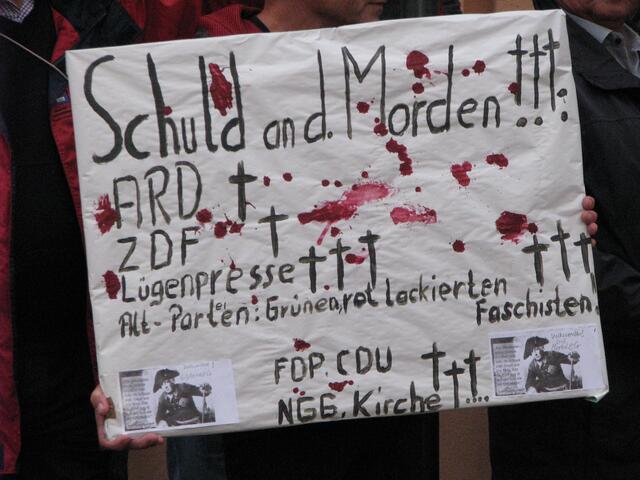 Schuld an d. Morden!!!
ARD
ZDF
Lügenpresse
Alt-Partein: Grünen, rot lackierten
Faschisten!
FDP. CDU
NGG, Kirche....